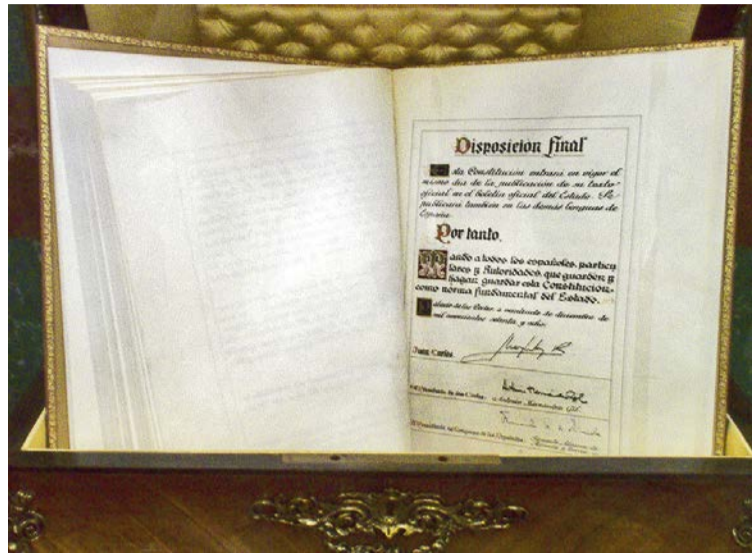 Disposición final
Esta Constitución entrará en vigor el
mismo día de la publicación de su texto
oficial en el boletín oficial del Estado. Se
publicará también en las demás lenguas de
España.
Por tanto,
Mando a todos los españoles, particu
lares y Autoridades, que guarden y
hagan guardar esta Constitución
como norma fundamental del Estado.
Palacio de las Cortes, a veintisiete de diciembre de
mil novecientos setenta y ocho.
Juan Carlos
El Presidente de las Cortes
Antonio Hernández Gil
El Presidente del Congreso de los Diputados